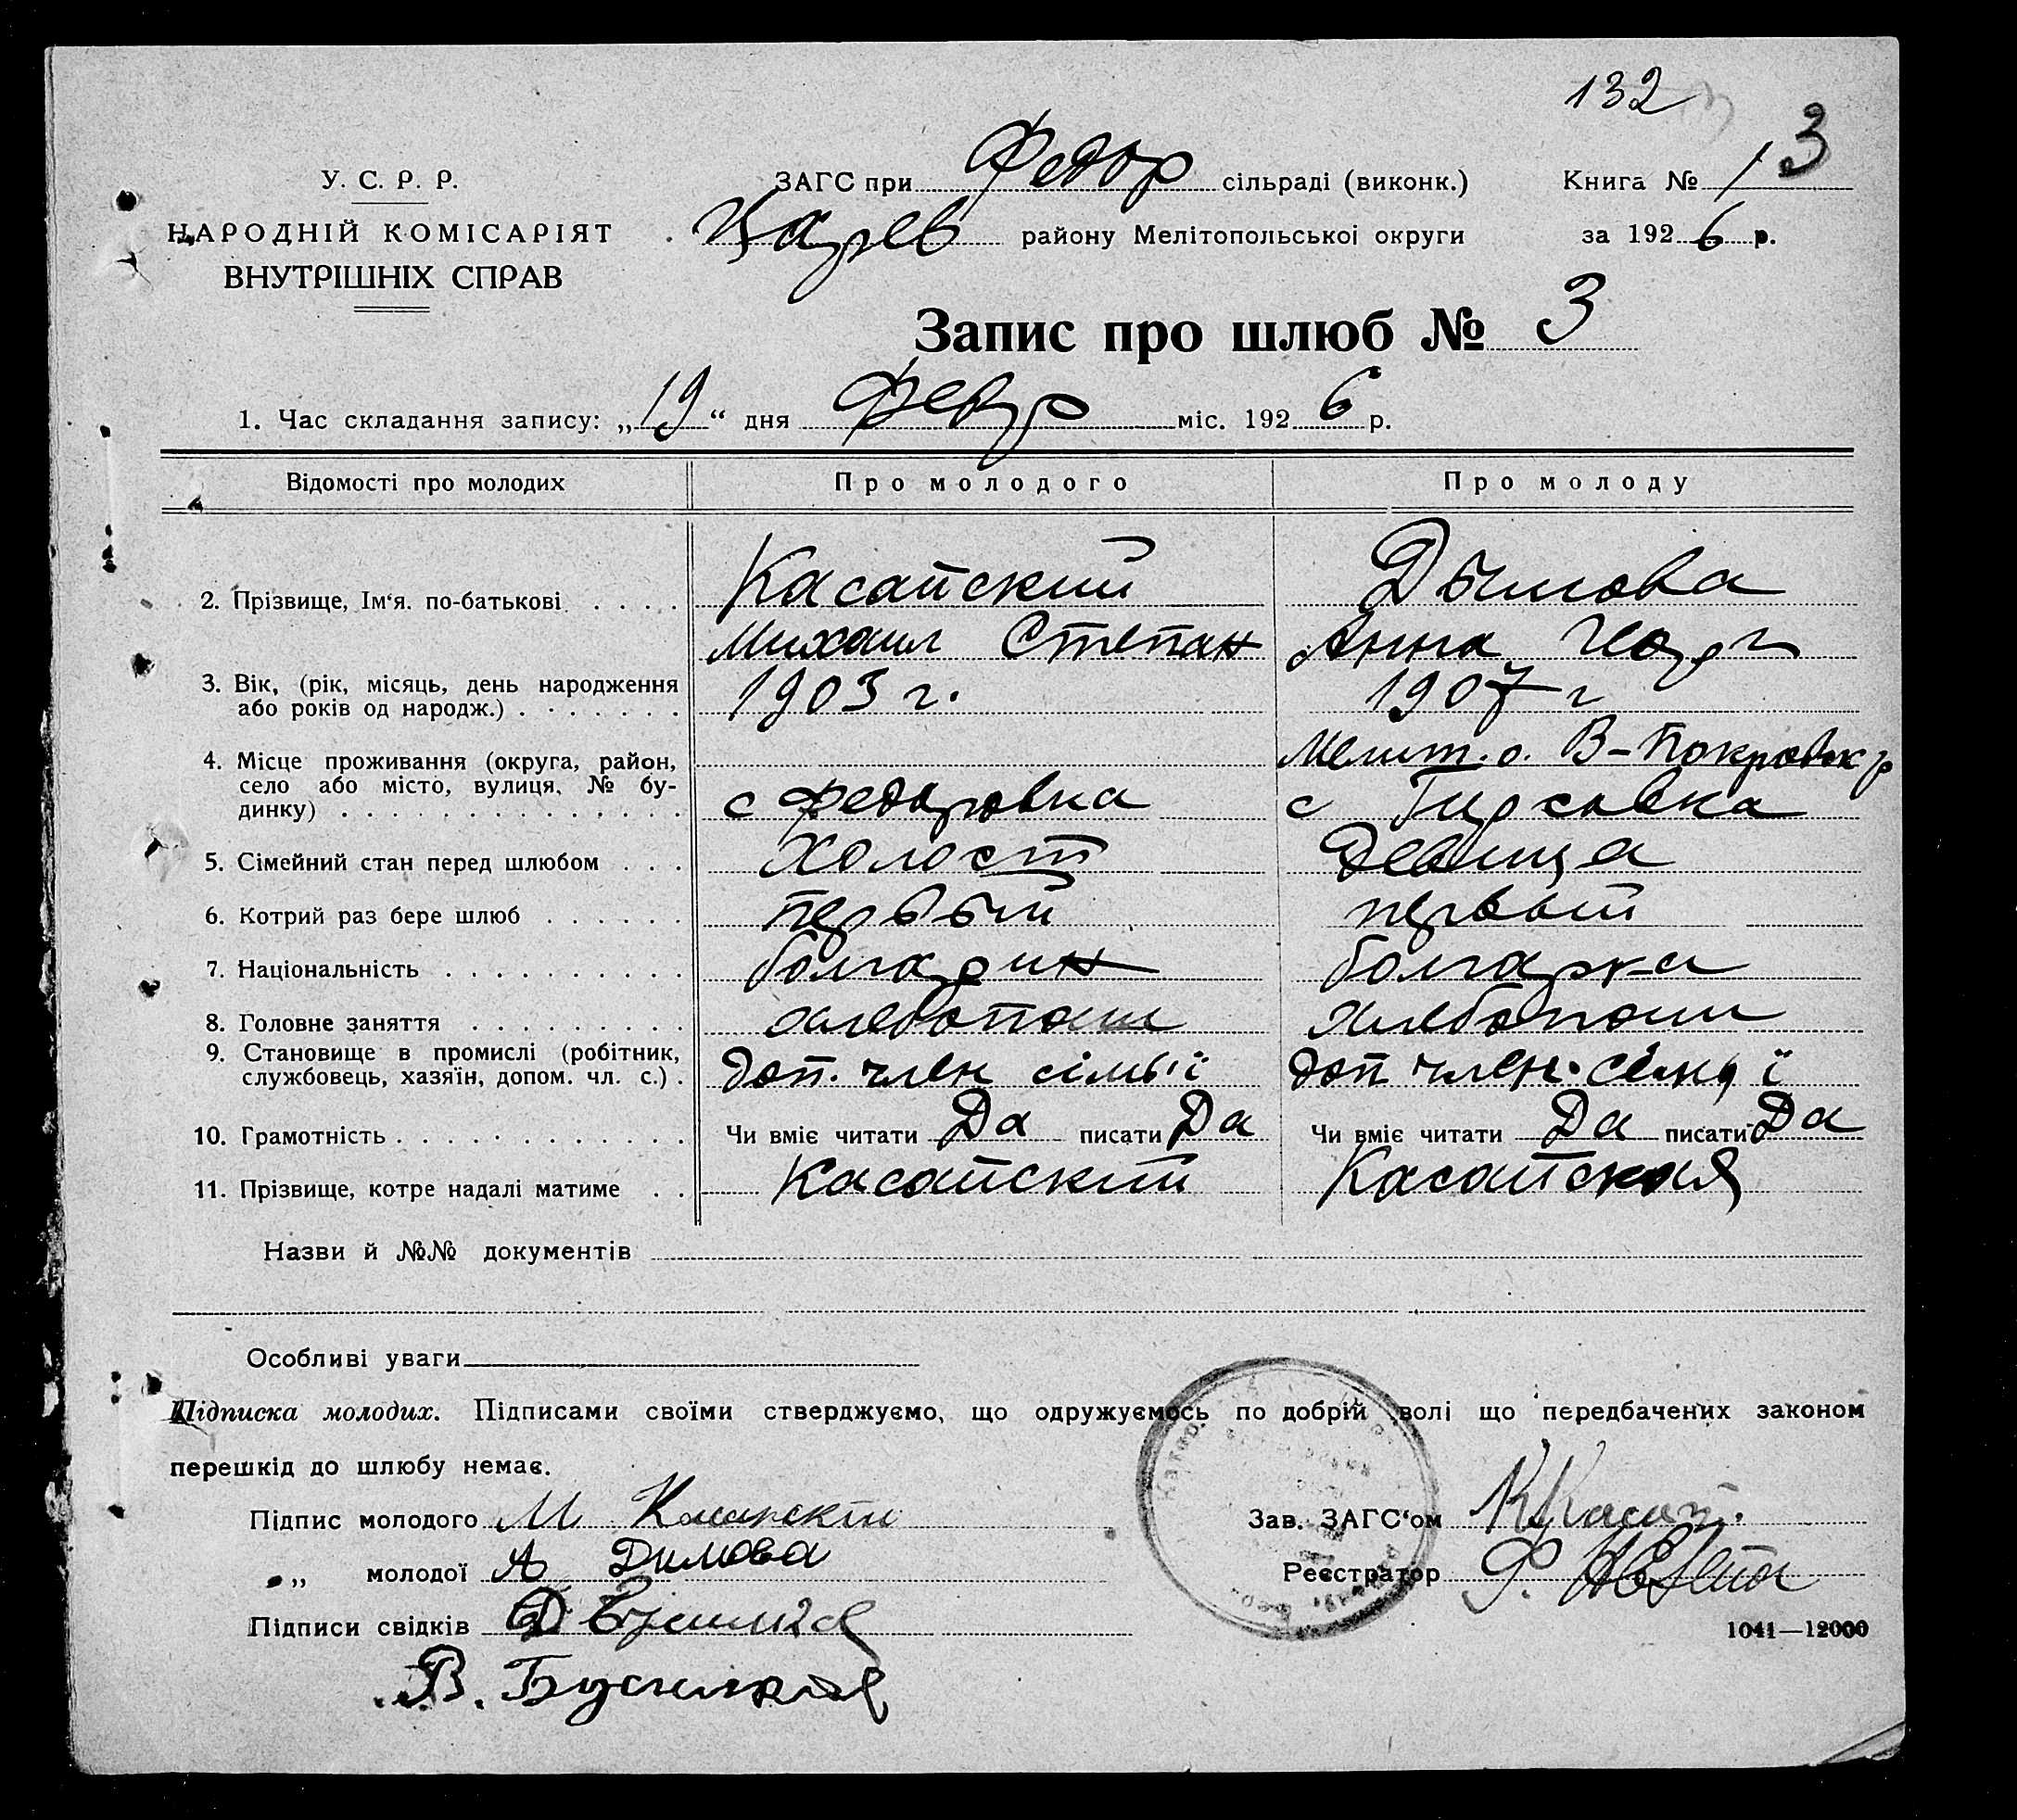 132
3
У. С. Р. Р.
ЗАГС при Федор сільраді (виконк.)
Книга № 1
НАРОДНІЙ КОМІСАРІЯТ
Царев району Мелітопольської округи
за 1926 р.
ВНУТРІШНІХ СПРАВ
Запис про шлюб № 3
1. Час складання запису: „19“ дня Февр міс. 1926 р.
Відомості про молодих Про молодого Про молоду
2. Прізвище, Ім‘я. по-батькові Касапский Дымова
Михаил Степан Анна
3. Вік, (рік, місяць, день народження 1903 г. 1907 г
або років од народж.)
4. Місце проживання (округа, район, Мелит. о. В-Покровск р
село або місто, вулиця, № бу- с Федоровка с Гирсовка
динку)
5. Сімейний стан перед шлюбом Холост Девица
6. Котрий раз бере шлюб первый первый
7. Національність болгарин болгарка
8. Головне заняття хлебопаш хлебопаш
9. Становище в промислі (робітник, доп. член сімьї доп член. семьї
службовець, хазяїн, допом. чл. с.)
10. Грамотність Чи вміє читати Да писати Да Чи вміє читати Да писати Да
11. Прізвище, котре надалі матиме Касапский Касапская
Назви й №№ документів
Особливі уваги
Підписка молодих. Підписами своїми стверджуємо, що одружуємось по добрій волі що передбачених законом
перешкід до шлюбу немає.
Підпис молодого М
Зав. ЗАГС‘ом
„ молодої А Димова
Реєстратор Ф.
Підписи свідків
1041—12000
В.